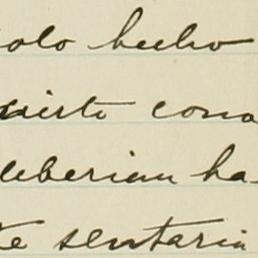 solo hecho
cierto cono
deberian ha-
te sentaria